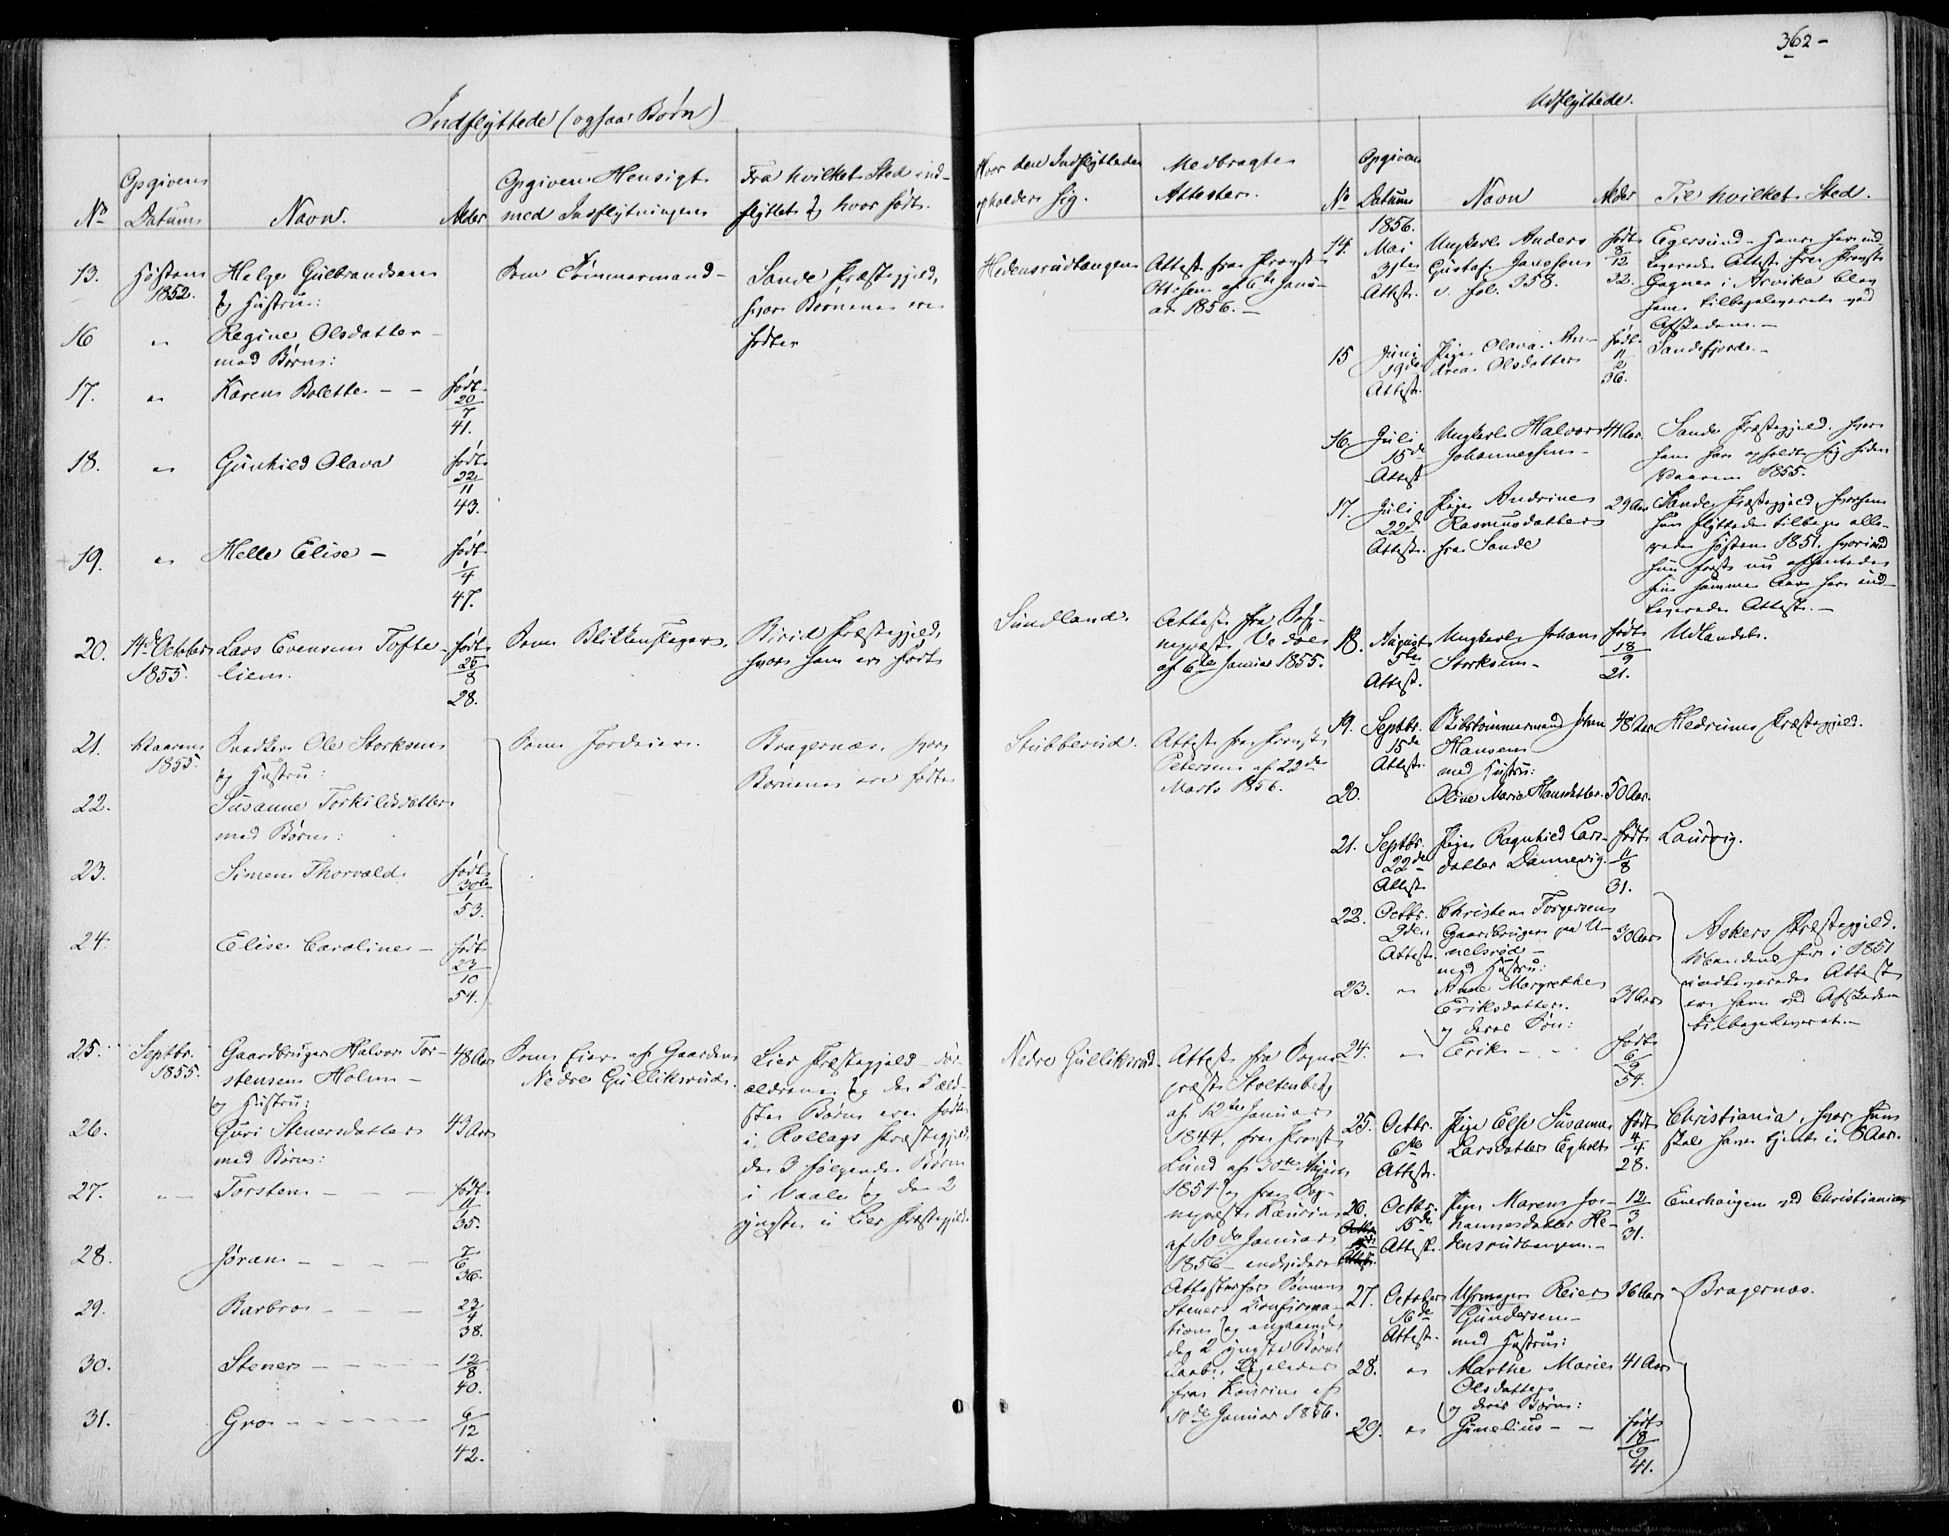 362-
Indflyttede (ogsaa Børn)
Udflyttede.
No
Opgivne
Datum
Navn.
Alder
Opgiven Hensigt
med Indflytningen
Fra hvilket Sted ind-
flyttet og hvor født.
Hvor den Indflyttede
opholder sig.
Medbragte
Attester.
13.
Høsten
1852.
Helge Gulbrandsen
og Hustru:
Som Tømmermand
Sande Præstegjeld,
hvor Børnene ere
fødte
Hedensrudtangen
Attest fra Provst
af 6te Janu-
ar 1856.
16
"
Regine Olsdatter
med Børn:
17.
"
Karen Bolette - -
født
20/7
41.
18.
"
Gunhild Olava
født
22/11
43.
19.
"
Helle Elise -
født
1/4
47.
20.
14de October
1855.
Lars Evensen Tofte-
lien.
født
25/8
28.
Som Blikkenslager.
Birid Præstegjeld,
hvor han er født
Sundland.
Attest fra Sog-
nepræst
af 6te Januar 1855.
21.
Vaaren
1855.
Snedker Ole Storksen
og Hustru:
Som Jordeier.
Bragernæs, hvor
Børnene ere fødte
Stubberud.
Attest fra Provst
Petersen af 22de
Marts 1856.
22.
Susanne Torkildsdatter
med Børn:
23.
Simen Thorvald
født
30te/1
53.
24.
Elise Caroline -
født
23/10
54.
25.
Septbr.
1855.
Gaardbruger Halvor Tor-
stensen Holm -
og Hustru:
48 Aar
Som Eier af Gaarden
Nedre Gulliksrud.
Lier Præstegjeld - For-
ældrene og de 4 æld-
ste Børn ere fødte
i Rollags Præstegjeld,
de 3 følgende Børn
i Vaale og de 2
yngste i Lier Præstegjeld.
Nedre Gulliksrud.
Attest fra Sogne-
præst Stoltenberg
af 12te Januar
1844, fra Provst
Lund af 30te
1854 og fra Sog-
nepræst Kaurin
af 10de Januar
1856 - endvidere
Attest for Sønnen
Steners Confirma-
tion og angaaende
de 2 yngste Børns
Daab, ligeledes
fra Kaurin af
10de Januar 1856.
26.
Guri Stenersdatter
med Børn:
43 Aar
27.
"
Torsten - - -
født
11
35.
28.
Jøran - - - -
7/6
36.
29.
Barbro - - -
23/4
38.
30.
Stener - - - -
12/8
40.
31.
Gro - - - - -
6/12
42.
No
Opgiven
Datum
Navn
Alder
Til hvilket Sted.
14.
1856.
Mai
31te
Attest.
Ungkarl Anders
Gustaf Jansson
v. fol. 358.
født
8/12
32.
Egersund - Hans her ind-
leverede Attest fra Provst
Gagner i Arvika blev
ham tilbageleveret ved
Afskeden. -
15
Juni
19de
Attest.
Pige Olava An-
drea Olsdatter
født
11/2
36.
Sandefjord. -
16.
Juli
15de
Attest
Ungkarl Halvor
Johannessen -
41 Aar.
Sande Præstegjeld, hvor
han har opholdt sig siden
Vaaren 1855.
17.
Juli
22de
Attest.
Pige Andrine
Rasmusdatter
fra Sande
29 Aar
Sande Præstegjeld, hvorhen
hun flyttede tilbage alle-
rede Høsten 1851. hvorimod
hun først nu afhentede
sin samme Aar her ind-
leverede Attest. -
18.
August
5te
Attest.
Ungkarl Johan
Storksen -
født
18/9
21.
Udlandet.
19.
Septbr.
15de
Attest.
Skibstømmermand Johan
Hansen
med Hustru:
48 Aar
Hedrums Præstegjeld.
20.
Oline Marie Hansdatter
50 Aar.
21.
Septbr.
22de
Attest
Pige Ragnhild Lars-
datter Dannevig
født
11/8
31.
Laurvig.
22.
Octbr.
2den
Attest.
Christen Torgersen
Gaardbruger paa U-
nelsrød -
med Hustru:
30 Aar
Askers Præstegjeld.
Mandens her i 1851
indleverede Attest
er ham ved Afskeden
tilbageleveret. -
23.
"
Anne Margrethe
Eriksdatter.
og deres Søn:
31 Aar
24.
"
Erik - -
født
6/9
54.
25.
Octbr.
6te
Attest.
Pige Else Susanne
Larsdatter Egholt
født
4/4
28.
Christiania, hvor hun
skal have tjent i 8 Aar.
26.
Octbr.
15de
Attest.
Pige Maren Jo-
hannesdatter He-
densrudtangen. -
12/3
31.
Enerhaugen ved Christiania
27.
October
16de
Attest.
Uhrmager Reier
Gundersen -
med Hustru:
36 Aar
Bragernæs.
28.
"
Marthe Marie
Olsdatter
og deres Børn:
41 Aar
29.
"
Gunelius - -
født
18/9
41.